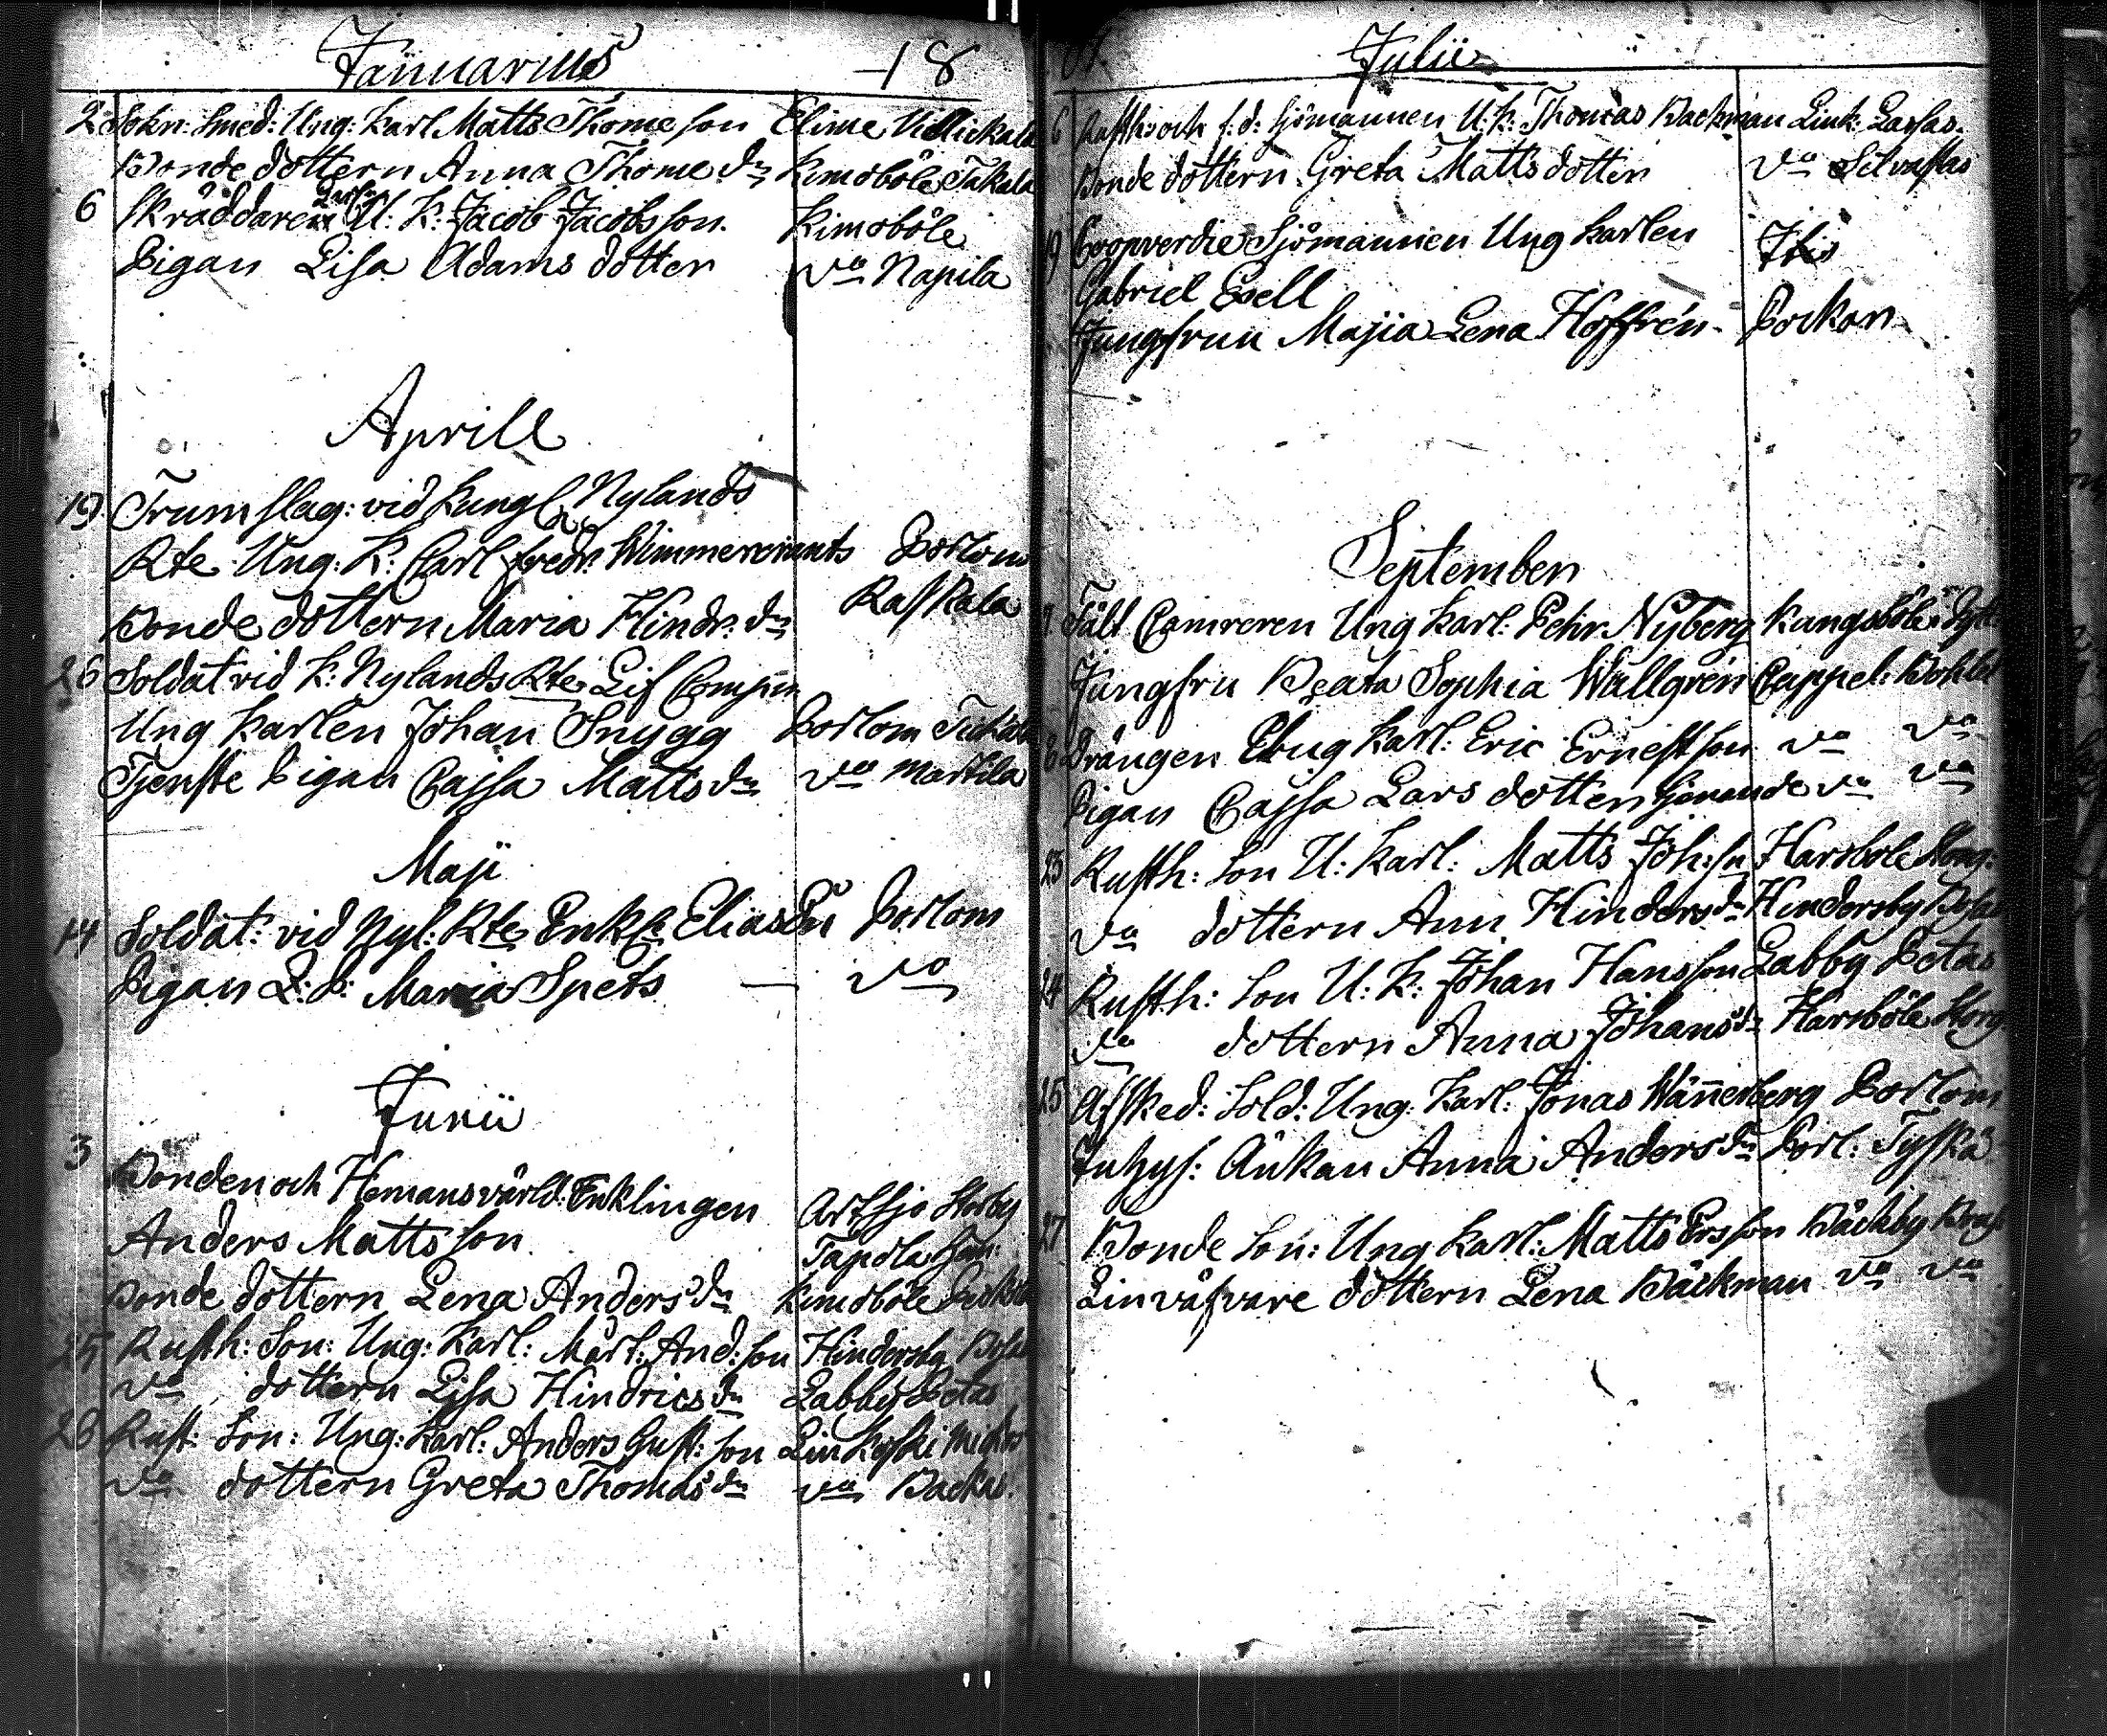 Januarius
18
2 Sokn: Smed: Ung: Karl Matts Thomeson Elime Mickala
Bonde dottern Anna Thome dr Kimoböle Takala
6 Skräddaren U: K: Jacob Jacobsson. Kimoböle
Pigan Lisa Adams dotter do Napila
Aprill
19 Trumslag: vid Kungl Nylands
Rte Ung: K: Carl Fredr: Porlom
Bonde dottern Maria Hindr: dr Raskala
26 Soldat vid K: Nylands Rte Lif Compn
Ung Karlen Johan Snygg Porlom
Tjenste Pigan Cajsa Matts dr do Martila
Maji
14 Soldat: vid Nyl: Rte Enkl: Elias En Porlom
Pigan L: B: Maria Spets — do
Junii
3 Bonden och Hemansvärld: Enklingen Artsjo Storby
Anders Mattsson Tapola
Bonde dottern Lena Anders dr Kimoböle
25 Rusth: Son: Ung: Karl: Mårt: And: son Hindersby
do dottern Lisa Hindrics dr Labby Petas
28 Rust: Son: Ung: Karl: Anders Gust: son Linkoski
do dottern Greta Thomas dr do Backas.
Julii
6 Rusth: och f: d: Sjömannen U: K: Thomas Backman Link: Lassas.
Bonde dottern Greta Matts dotter do Silvastas
19 Coopverdie Sjömannen Ung Karlen
Gabriel Exell
Jungfruu Majia Lena Hoffrén Pockar
September
7. Fält Camreren Ung Karl: Pehr Nyberg Kungsböle
Jungfru Beata Sophia Wallgren Cappel:
8 Drängen Ung Karl: Eric Ernestson do do
Pigan Cajsa Lars dotter do do
23 Rusth: Son U: Karl: Matts Joh: sn Harsböle
do dottern Ann Hinders dr Hindersby
24 Rusth: Son U: K: Johan Hansson Labby Petas
do dottern Anna Johans dr Harsböle
25 Afsked: Sold: Ung: Karl: Jonas Wännerberg Porlom
Inhys: Änkan Anna Anders dr Porl: Tyskä
27 Bonde Son: Ung Karl: Matts Ersson Bäckby
Linväfvare dottern Lena Bäckman do do